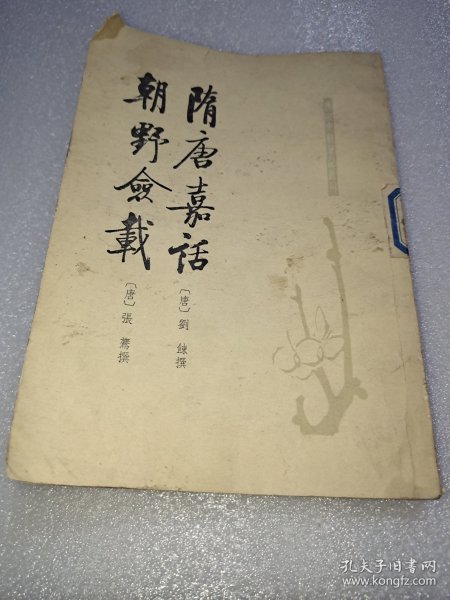 隋唐嘉話
〔唐〕劉餗撰
朝野僉載
〔唐〕張鷟撰
孔夫子旧书网
www.kongfz.com